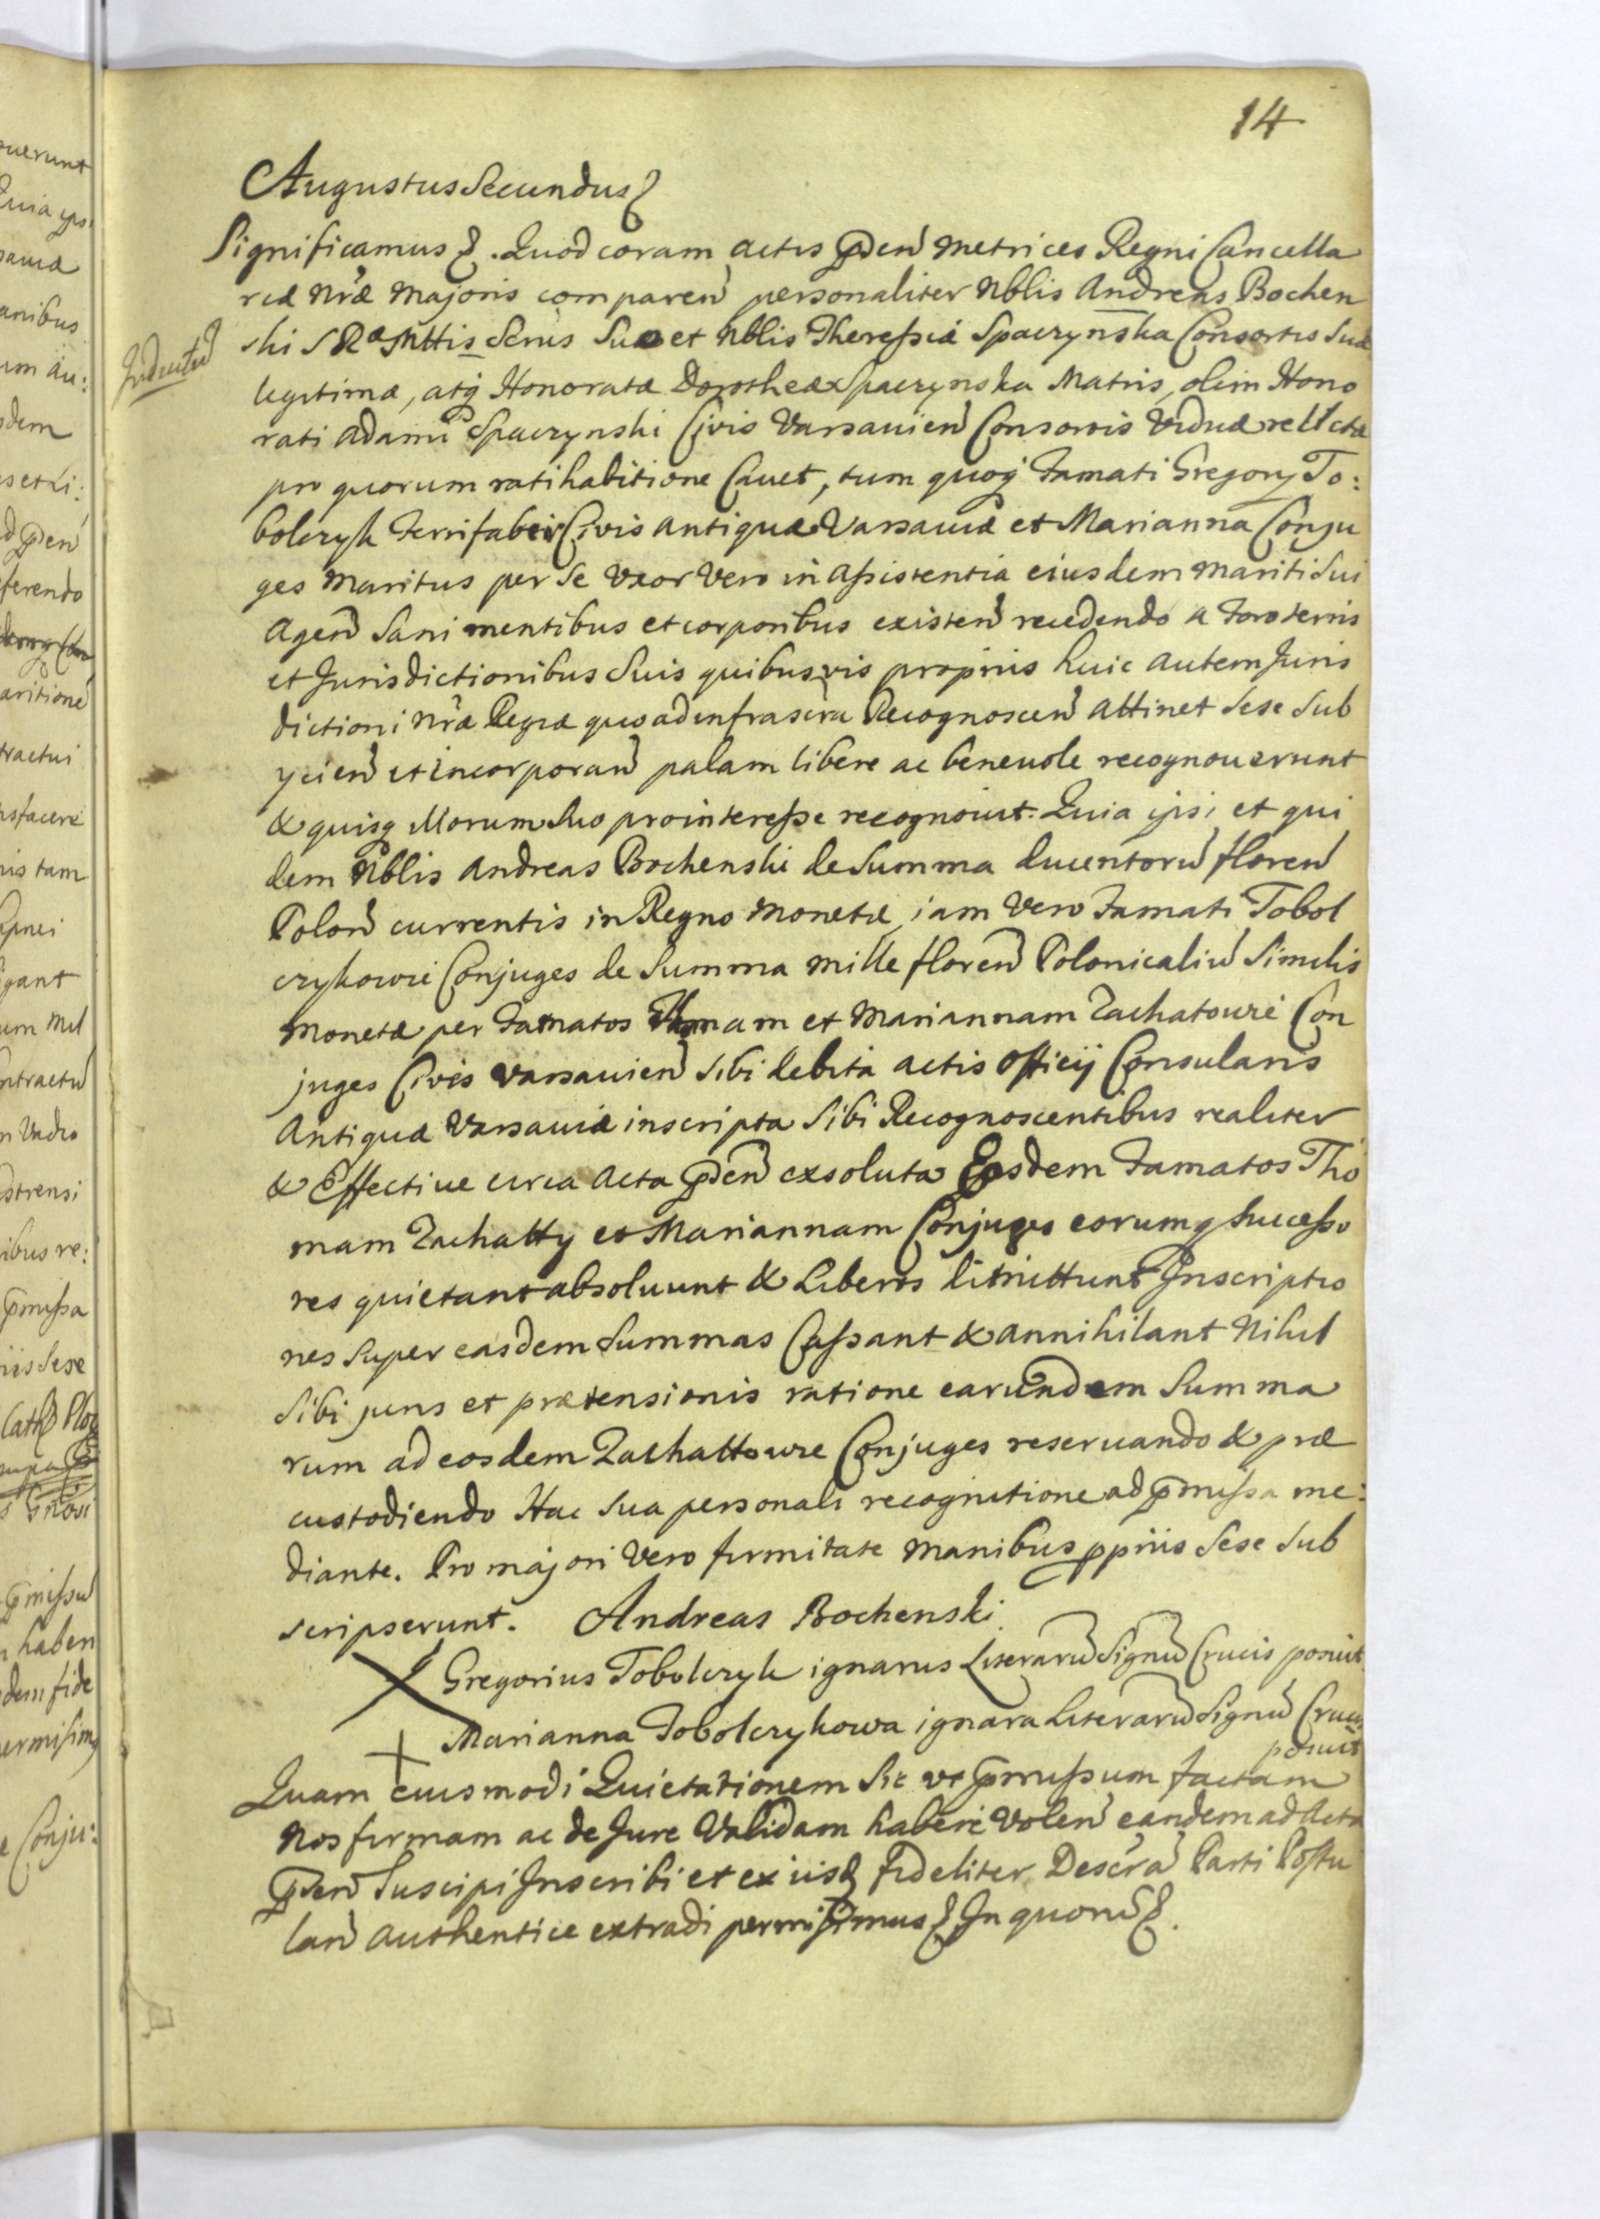 14
Augustus Secundus
Significamus. Quod coram actis pñen metrices Regni Cancella
riæ nræ majoris comparen personaliter Nblis Andreas Bochen
ski S R Mttis Serus Suo et Nblis Theressiæ Spaczynska Consortis Suæ
legitimæ, atq Honoratæ Dorotheæ Spaczynska Matris, olim Hono
rati Adami Spaczynski Civis Varsauien Consortis Viduæ relictæ
pro quorum ratihabitione Cauet, tum quoq Famati Gregory To:
bolczyk Ferrifabri Civis antiquæ Varsauiæ et Marianna Conju
ges maritus per se Vxor vero in assistentia eiusdem mariti sui
Agen Sani mentibus et corporibus existen recedendo a foro terris
et Jurisdictionibus Suis quibusvis proprijs huic autem Juris
dictioni Nræ Regiæ quo ad infrascra Recognoscen attinet sese sub
ycien et incorporan palam libere ac beneuole recognouerunt
& quisq illorum suo pro interesse recognouit. Quia ipsi et qui
dem Nblis Andreas Bochenski de Summa ducentoru floren
Polon currentis in Regno monetæ, jam Vero Famati Tobol
czykowie Conjuges de Summa mille floren Polonicaliu Similis
monetæ per Famatos Thomam et Mariannam Zachatowie Con
juges Cives varsauien sibi debita actis officij Consularis
Antiquæ Varsauiæ inscripta Sibi Recognoscentibus realiter
& Effectiue circa Acta pñen exsoluta Eosdem Famatos Tho
mam Zachatty et Mariannam Conjuges eorumq successo
res quietant absoluunt & Liberos dimittunt Inscriptio
nes super easdem Summas Cassant & annihilant Nihil
Sibi juris et prætensionis ratione earundem Summa
rum ad eosdem Zachattowie Conjuges reseruando & præ
custodiendo Hac sua personali recognitione ad pmissa me:
diante. Pro majori Vero firmitate manibus ppriis Sese Sub
scripserunt. Andreas Bochenski
Gregorius Tobolczyk ignarus Literaru Signu Crucis posuit
Marianna Tobolczykowa ignara Literaru Signu Crucis
posuit
Quam eiusmodi Quietationem Sic vt pmissum factam
Nos firmam ac de Jure Validam habere Volen eandem ad Acta
pñen Suscipi Inscribi et ex iisd fideliter Descra Parti Postu
lan authentice extradi permisimus In quoru.